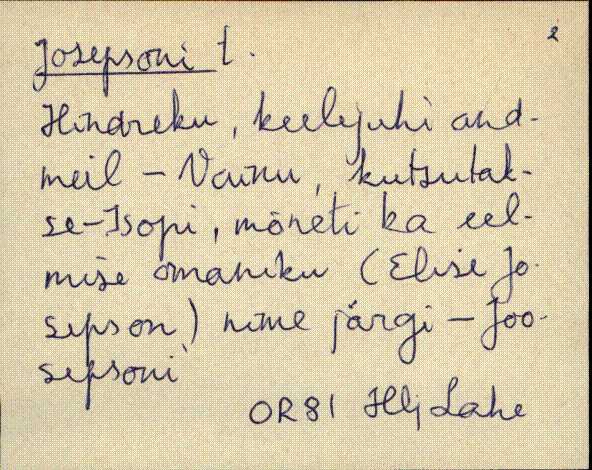 2
Josepsoni t.
Hindreku, keelejuhi and-
meil - Vainu, kutsutak-
se - Isopi, mõneti ka eel-
mise omaniku (Elise Jo-
sepson) nime järgi - Joo-
sepsoni
OR81 Hlj Lahe